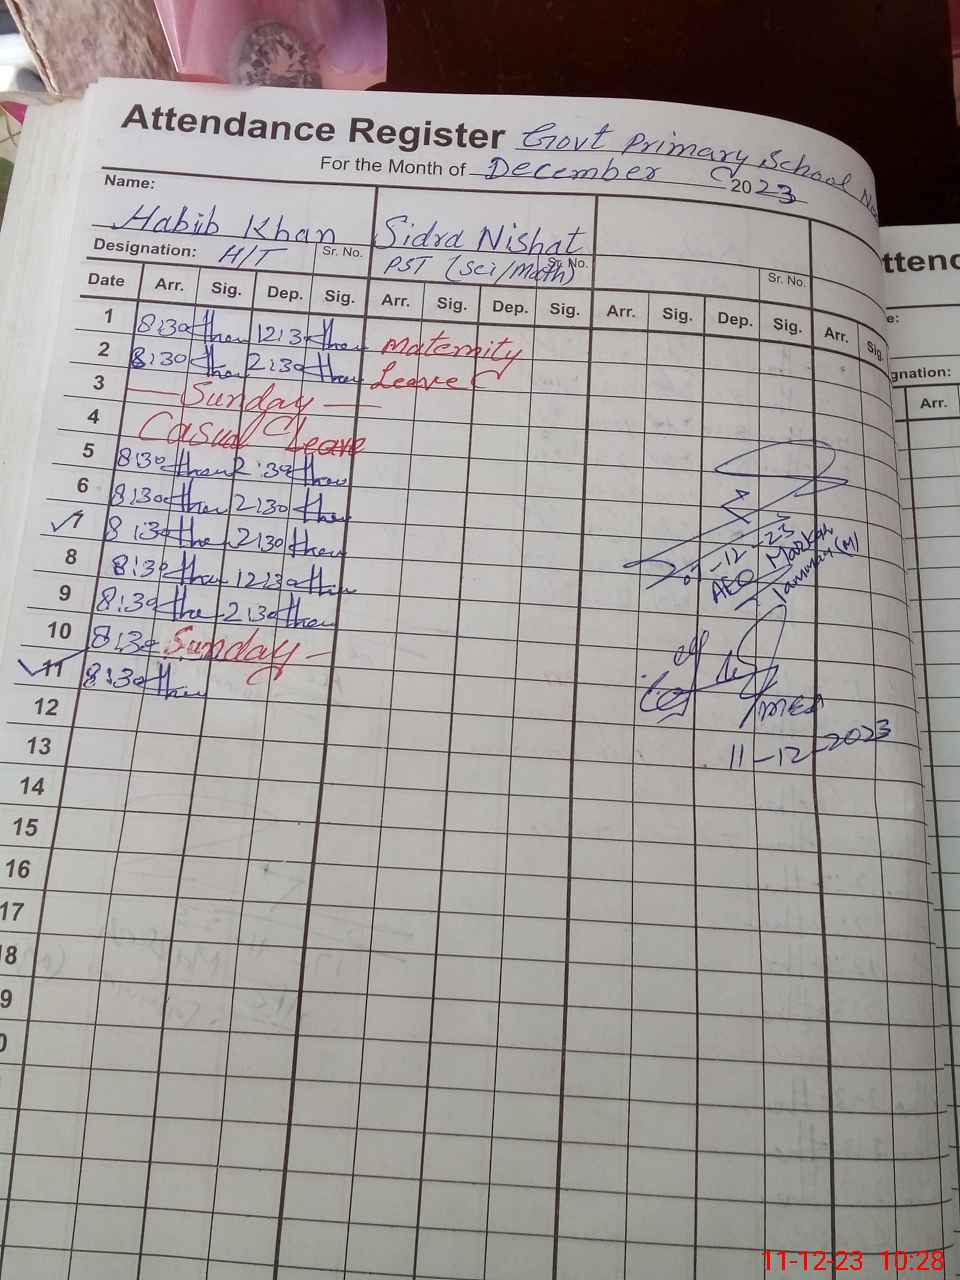 Attendance Register Govt Primary School No
For the Month of December 2023
Name:
Habib Khan Sidra Nishat
Designation: H/T Sr. No. PST (Sci/Math) Sr. No. Sr. No.
Date Arr. Sig. Dep. Sig. Arr. Sig. Dep. Sig. Arr. Sig. Dep. Sig. Arr. Sig.
1 8:30 12:30 Maternity
2 8:30 2:30 Leave
3 — Sunday —
4 Casual Leave
5 8:30 2:30
6 8:30 2:30
7 8:30 2:30
8 8:30 12:30
9 8:30 2:30
10 8:30 Sunday —
11 8:30
12
13
14
15
16
17
18
9
0
07-12-23
AEO Markaz
MEA
11-12-2023
ttend
e:
gnation:
Arr.
11-12-23 10:28